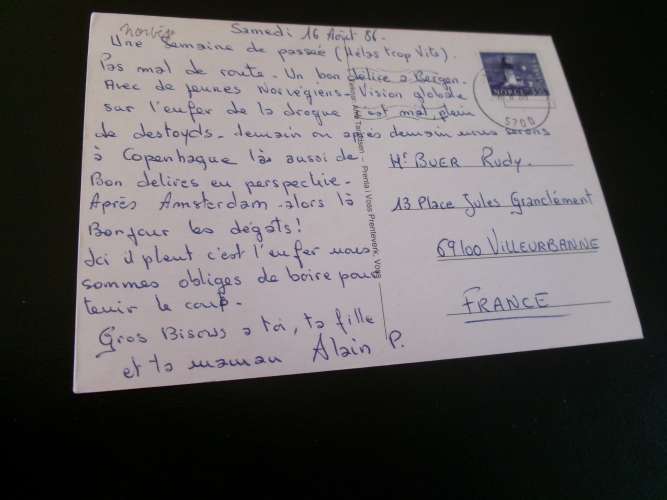 Samedi 16 Août 86.
Une Semaine de passée (Hélas trop Vite).
Pas mal de route. Un bon délire à Bergen.
Avec de jeunes Norvégiens. Vision globale
sur l'enfer de la drogue c'est mal plein
de destoyds. demain ou après demain nous serons
à Copenhague là aussi de
Bon delires en perspective.
Après Amsterdam alors là
Bonjour les dégats!
Ici il pleut c'est l'enfer nous
sommes obliges de boire pour
tenir le coup.
Gros Bisous a toi, ta fille
et ta maman Alain P.
NORGE
5700
Mr BUER Rudy.
13 Place Jules Granclément
69100 VILLEURBANNE
FRANCE